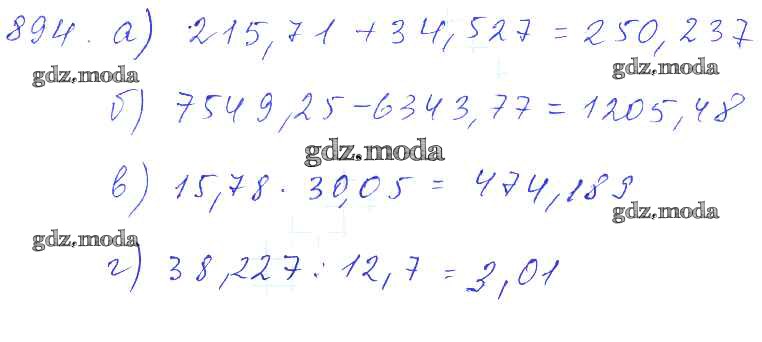 894. а) 215,71 + 34,527 = 250,237
gdz.moda gdz.moda
б) 7549,25 - 6343,77 = 1205,48
gdz.moda
в) 15,78 · 30,05 = 474,189
gdz.moda
gdz.moda
г) 38,227 : 12,7 = 3,01